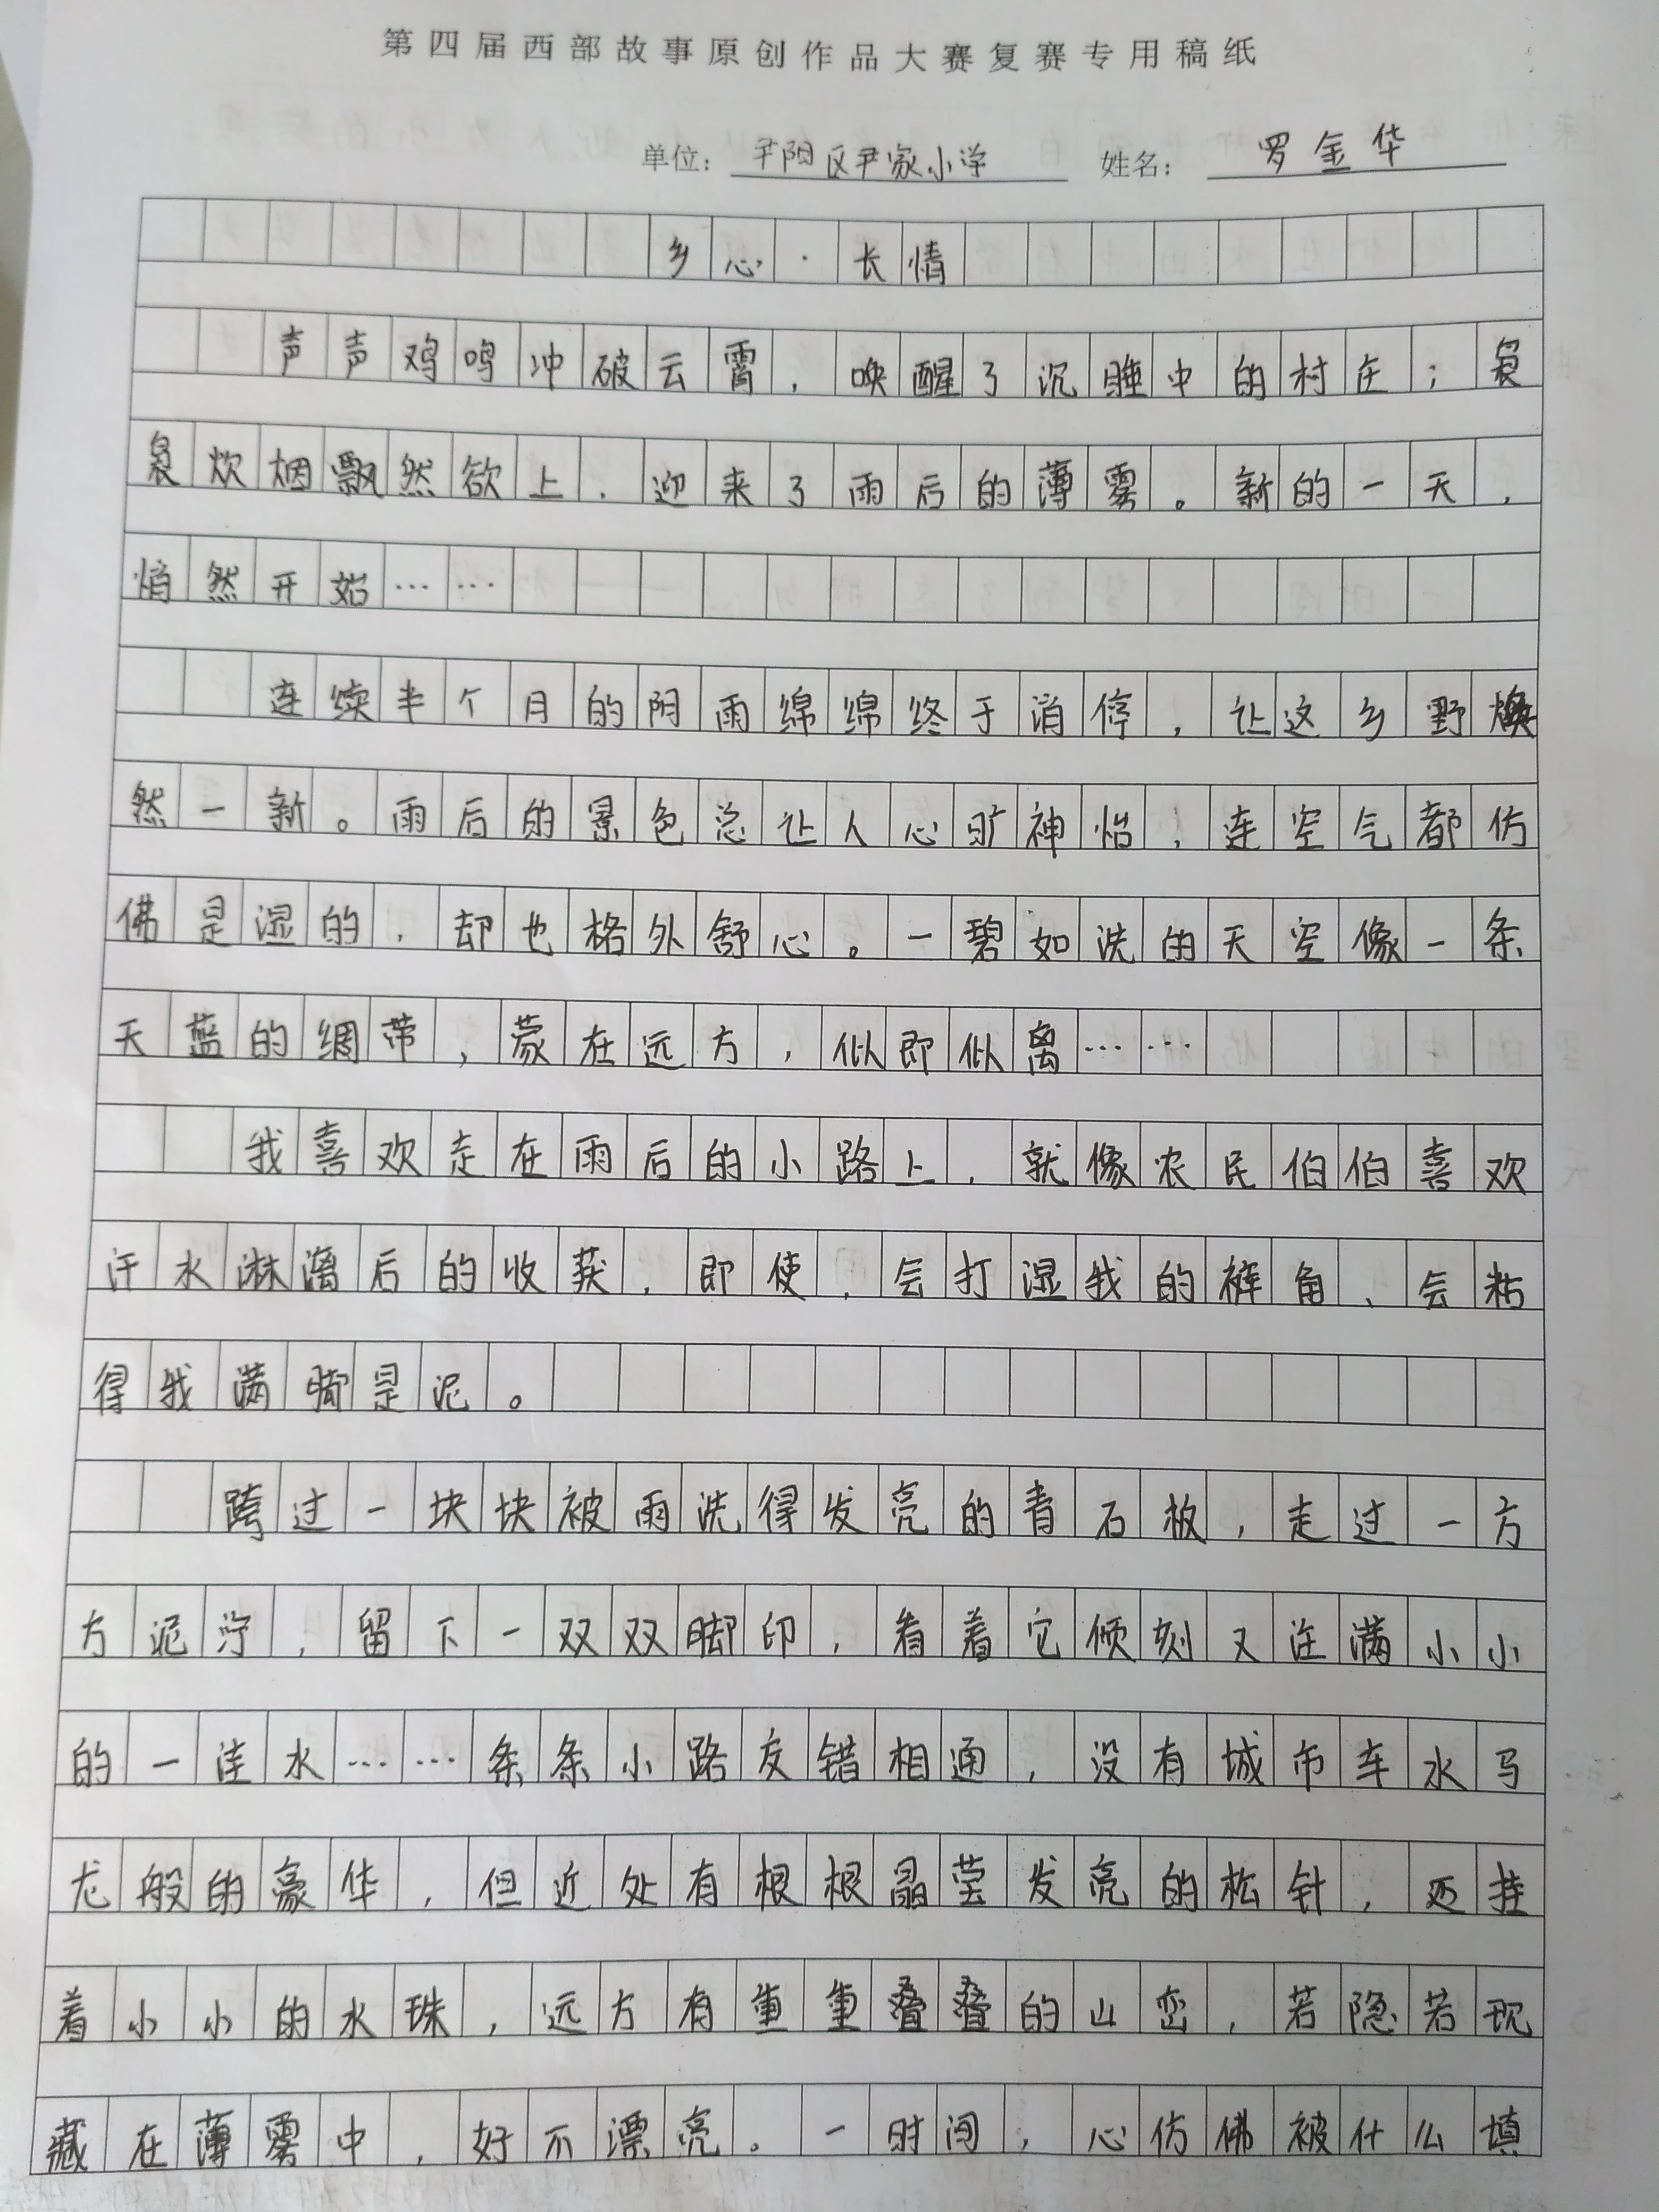 第四届西部故事原创作品大赛复赛专用稿纸
单位：尹阳区尹家小学 姓名：罗金华
乡心·长情
声声鸡鸣冲破云霄，唤醒了沉睡中的村庄；袅
袅炊烟飘然欲上，迎来了雨后的薄雾。新的一天，
悄然开始……
连续半个月的阴雨绵绵终于消停，让这乡野焕
然一新。雨后的景色总让人心旷神怡，连空气都仿
佛是湿的，却也格外舒心。一碧如洗的天空像一条
天蓝的绸带，蒙在远方，似即似离……
我喜欢走在雨后的小路上，就像农民伯伯喜欢
汗水淋漓后的收获，即使，会打湿我的裤角、会粘
得我满脚是泥。
跨过一块块被雨洗得发亮的青石板，走过一方
方泥泞，留下一双双脚印，看着它倾刻又注满小小
的一洼水……条条小路交错相通，没有城市车水马
龙般的豪华，但近处有根根晶莹发亮的松针，还挂
着小小的水珠，远方有重重叠叠的山峦，若隐若现
藏在薄雾中，好不漂亮。一时间，心仿佛被什么填